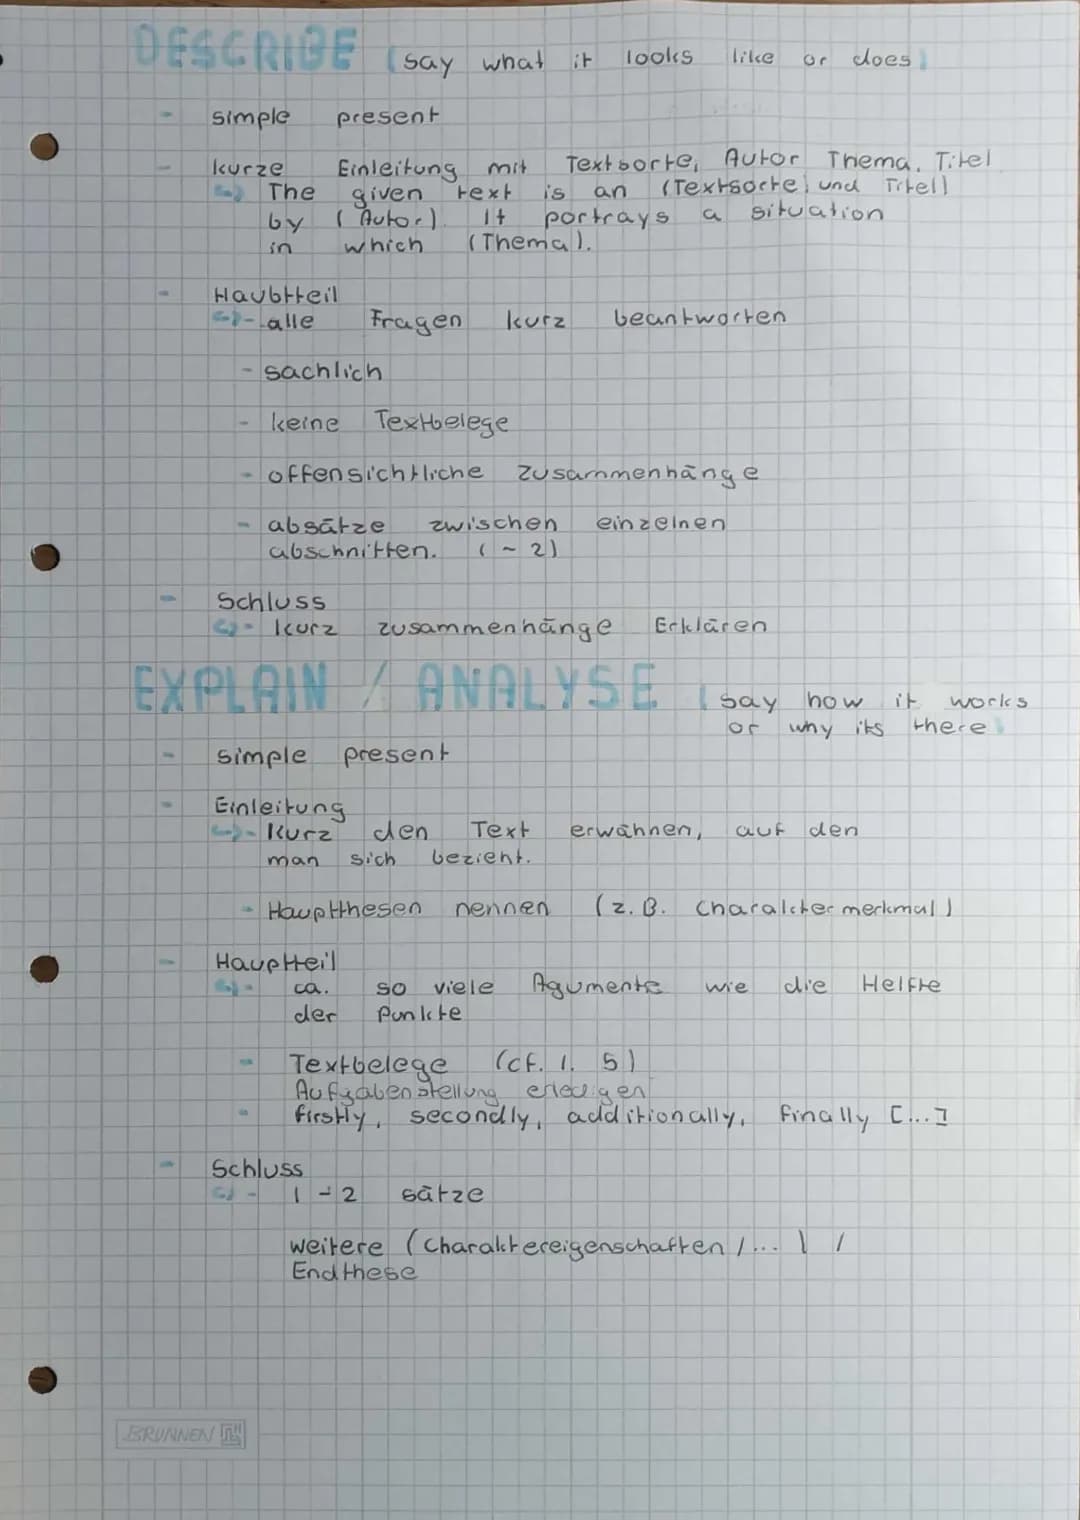 DESCRIBE (say what it looks like or does)
- simple present
- kurze Einleitung mit Textsorte, Autor Thema, Titel
↳ The given text is an (Textsorte und Titel)
by (Autor). It portrays a situation
in which (Thema).
- Haubtteil
↳ - alle Fragen kurz beantworten
- sachlich
- keine Textbelege
- offensichtliche Zusammenhänge
- absätze zwischen einzelnen
abschnitten. (~2)
- Schluss
↳ - kurz zusammenhänge Erklären
EXPLAIN / ANALYSE (say how it works
or why its there)
- simple present
- Einleitung
↳ - Kurz den Text erwähnen, auf den
man sich bezieht.
- Hauptthesen nennen (z.B. Charaktermerkmal)
- Hauptteil
↳ - ca. so viele Agumente wie die Helfte
der Punkte
- Textbelege (cf. l. 5)
Aufgabenstellung erledigen
- firstly, secondly, additionally, finally [...]
- Schluss
↳ - 1-2 sätze
weitere (Charaktereigenschaften / ...) /
Endthese
BRUNNEN